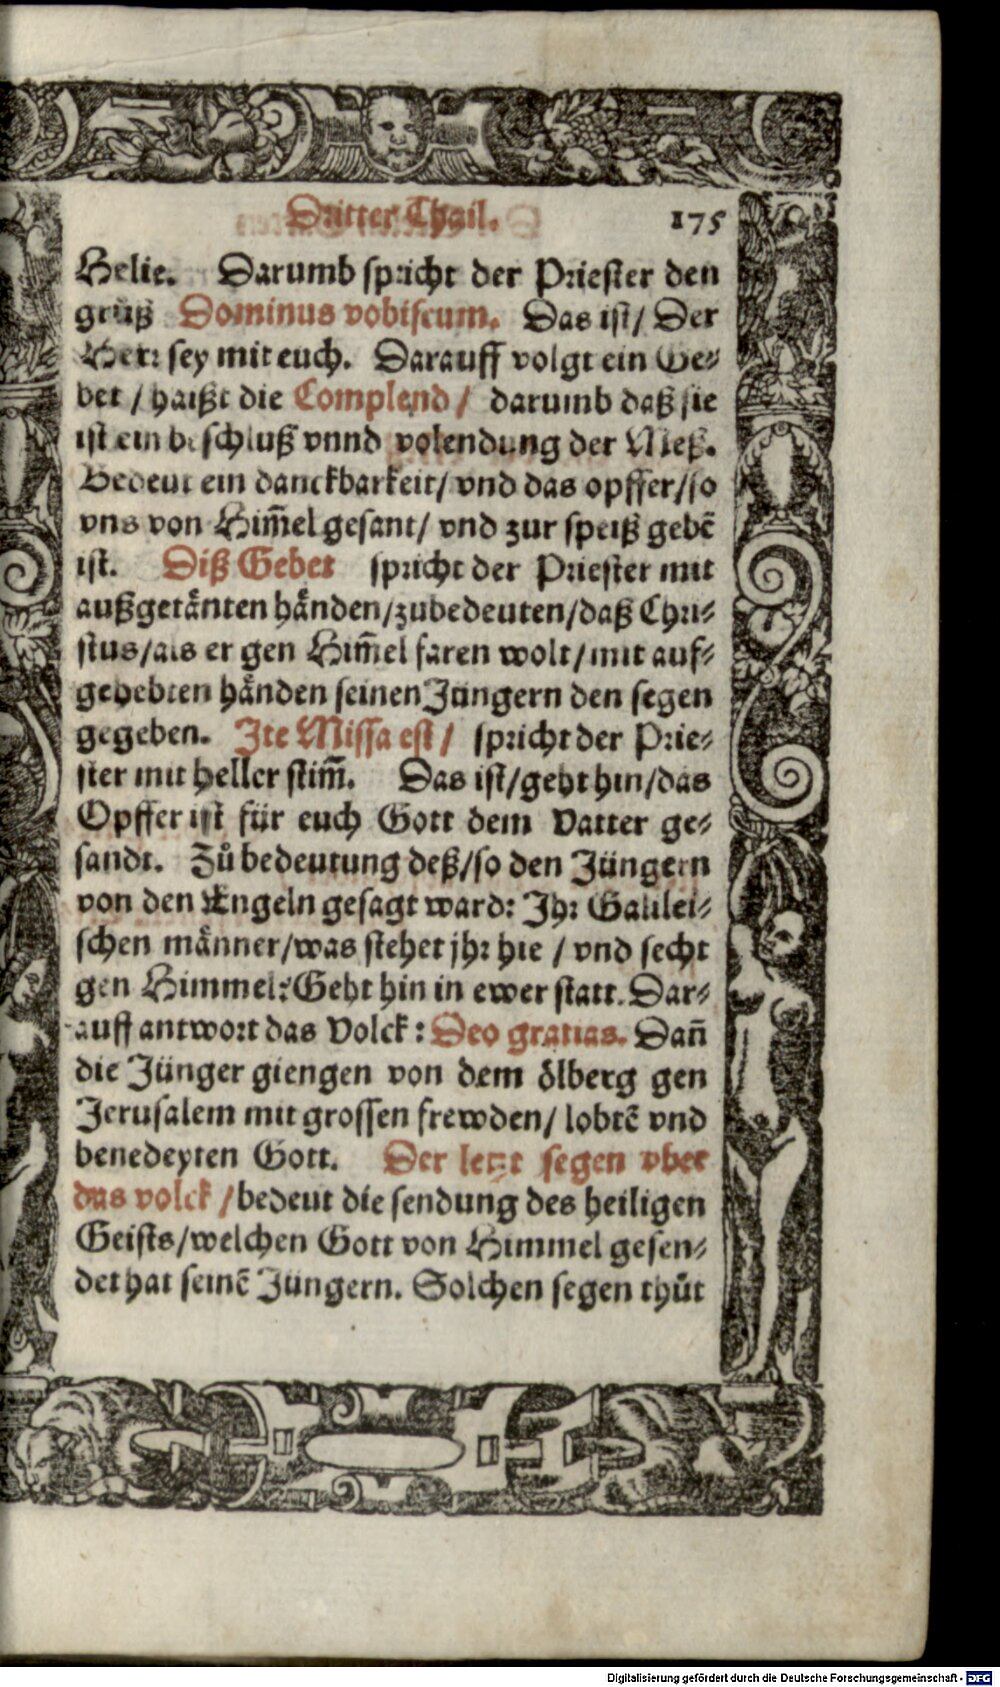 Dritter Thail. 175
Helie. Darumb spricht der Priester den
grůß Dominus vobiscum. Das ist/ Der
Herr sey mit euch. Darauff volgt ein Ge⸗
bet / haißt die Complend / darumb daß sie
ist ein beschluß vnnd volendung der Meß.
Bedeut ein danckbarkeit/ vnd das opffer/so
vns von Him̃el gesant/ vnd zur speiß gebẽ
ist. Diß Gebet spricht der Priester mit
außgetånten hånden/zubedeuten/daß Chri⸗
stus/als er gen Him̃el faren wolt/mit auf⸗
gehebten hånden seinen Jüngern den segen
gegeben. Jte Missa est / spricht der Prie⸗
ster mit heller stim̃. Das ist/geht hin/das
Opffer ist für euch Gott dem Vatter ge⸗
sandt. Zů bedeutung deß/so den Jüngern
von den Engeln gesagt ward: Jhr Galilei⸗
schen månner/was stehet jhr hie / vnd secht
gen Himmel: Geht hin in ewer statt. Dar⸗
auff antwort das Volck: Deo gratias. Dañ
die Jünger giengen von dem ölberg gen
Jerusalem mit grossen frewden/ lobtẽ vnd
benedeyten Gott. Der letzt segen vber
das volck / bedeut die sendung des heiligen
Geists/welchen Gott von Himmel gesen⸗
det hat seinẽ Jüngern. Solchen segen thůt
Digitalisierung gefördert durch die Deutsche Forschungsgemeinschaft - DFG